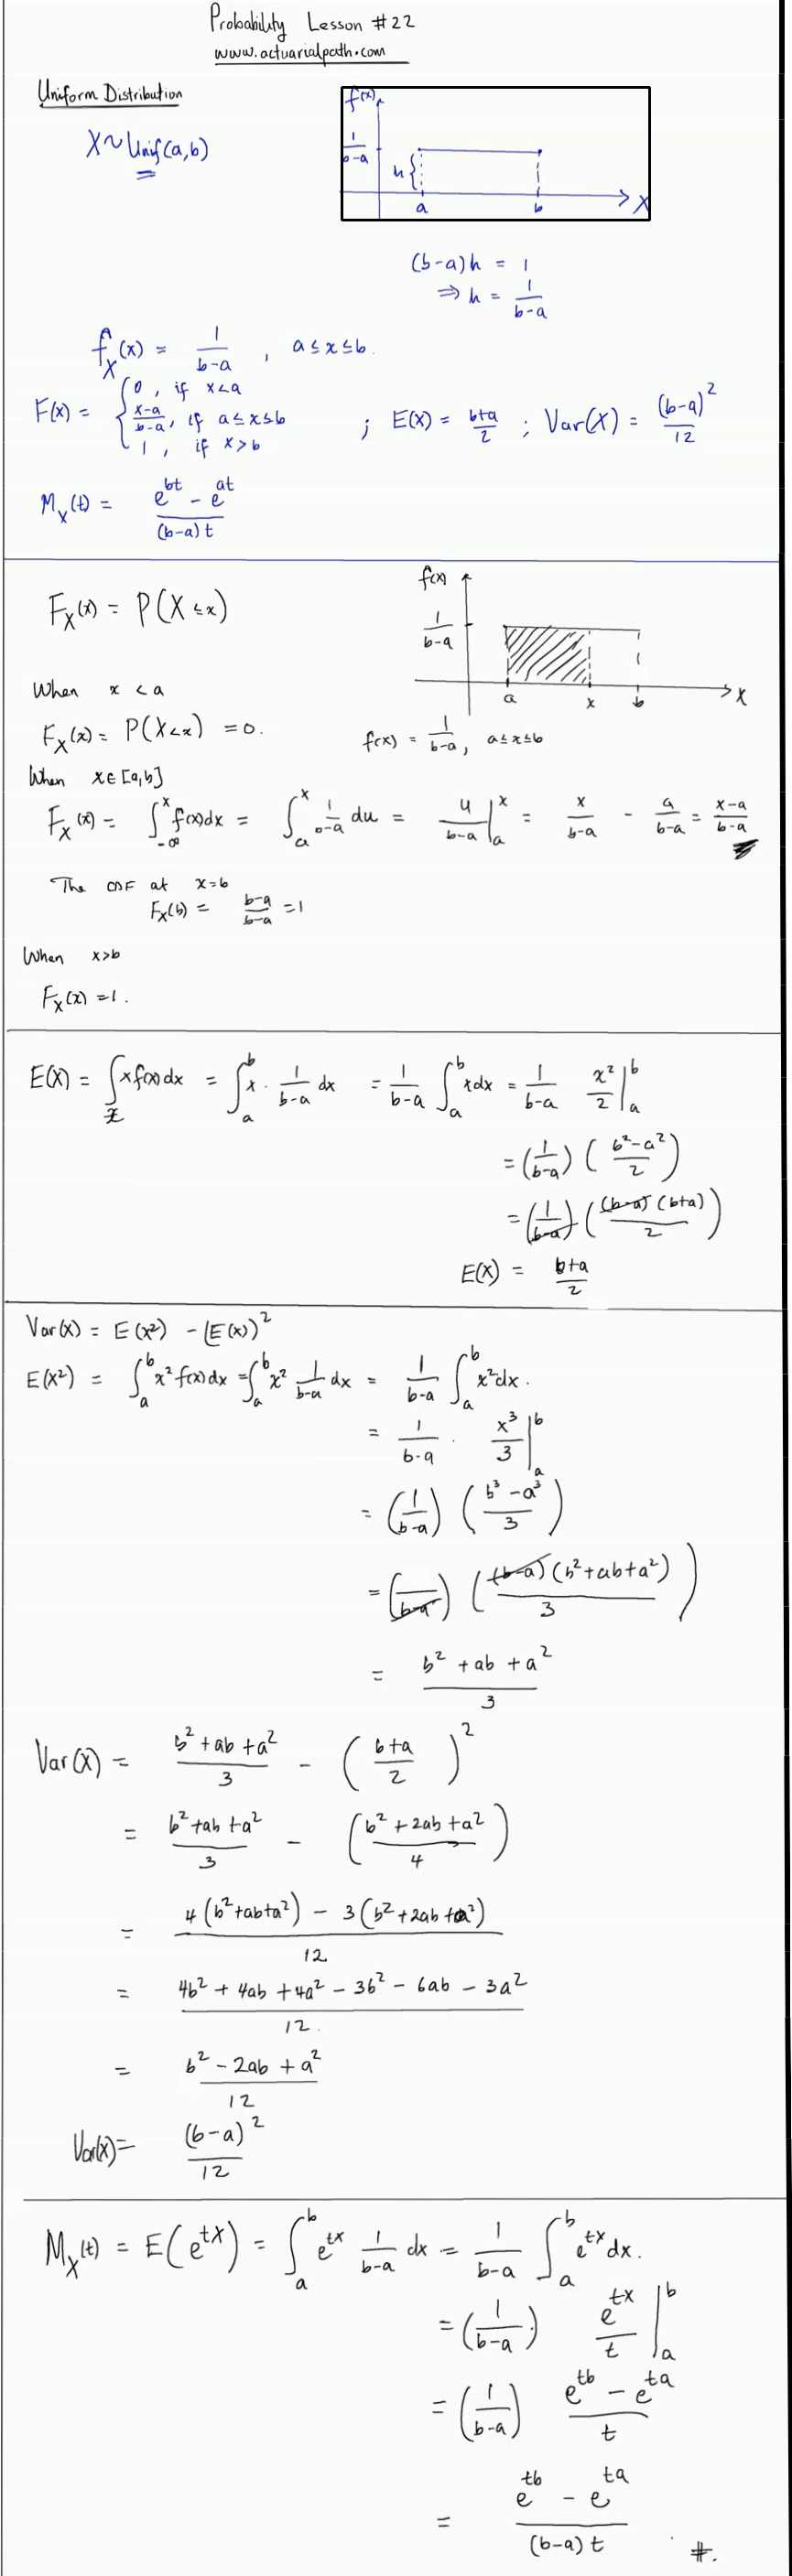 Probability Lesson #22
www.actuarialpath.com
Uniform Distribution
X ~ Unif(a,b)
f(x)
1/(b-a)
h{
a b X
(b-a)h = 1
⇒ h = 1/(b-a)
f_X(x) = 1/(b-a) , a ≤ x ≤ b.
F(x) = { 0 , if x<a
(x-a)/(b-a), if a ≤ x ≤ b
1 , if x > b
; E(X) = (b+a)/2 ; Var(X) = (b-a)²/12
M_X(t) = (e^bt - e^at)/((b-a)t)
F_X(x) = P(X ≤ x)
f(x)
1/(b-a)
a x b X
When x < a
F_X(x) = P(X<x) = 0.
f(x) = 1/(b-a), a ≤ x ≤ b
When x ∈ [a,b]
F_X(x) = ∫_{-∞}^x f(x)dx = ∫_a^x 1/(b-a) du = u/(b-a) |_a^x = x/(b-a) - a/(b-a) = (x-a)/(b-a)
The CDF at x=b
F_X(b) = (b-a)/(b-a) = 1
When x>b
F_X(x) = 1.
E(X) = ∫_x x f(x) dx = ∫_a^b x · 1/(b-a) dx = 1/(b-a) ∫_a^b x dx = 1/(b-a) x²/2 |_a^b
= (1/(b-a)) ((b²-a²)/2)
= (1/(b-a)) ((b-a)(b+a)/2)
E(X) = (b+a)/2
Var(X) = E(X²) - (E(X))²
E(X²) = ∫_a^b x² f(x) dx = ∫_a^b x² 1/(b-a) dx = 1/(b-a) ∫_a^b x² dx.
= 1/(b-a) · x³/3 |_a^b
= (1/(b-a)) ((b³ - a³)/3)
= (1/(b-a)) ((b-a)(b²+ab+a²)/3)
= (b² + ab + a²)/3
Var(X) = (b² + ab + a²)/3 - ((b+a)/2)²
= (b² + ab + a²)/3 - ((b² + 2ab + a²)/4)
= (4(b²+ab+a²) - 3(b²+2ab+a²))/12
= (4b² + 4ab + 4a² - 3b² - 6ab - 3a²)/12.
= (b² - 2ab + a²)/12
Var(X) = (b-a)²/12
M_X(t) = E(e^tX) = ∫_a^b e^tx 1/(b-a) dx = 1/(b-a) ∫_a^b e^tx dx.
= (1/(b-a)) e^tx/t |_a^b
= (1/(b-a)) (e^tb - e^ta)/t
= (e^tb - e^ta)/((b-a)t) #.